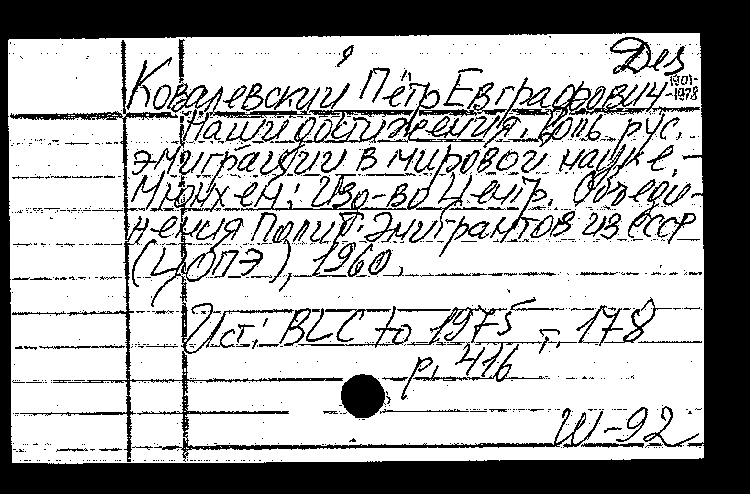 Дез
Ковалевский Пётр Евграфович 1901-
-1978
Наши достижения. Роль рус.
эмиграции в мировой науке. -
Мюнхен: Изд-во Центр. Объеди-
нения Полит. Эмигрантов из СССР
(ЦОПЭ), 1960.
Ист.: BLC to 1975 т. 178
p. 416
Ш-92